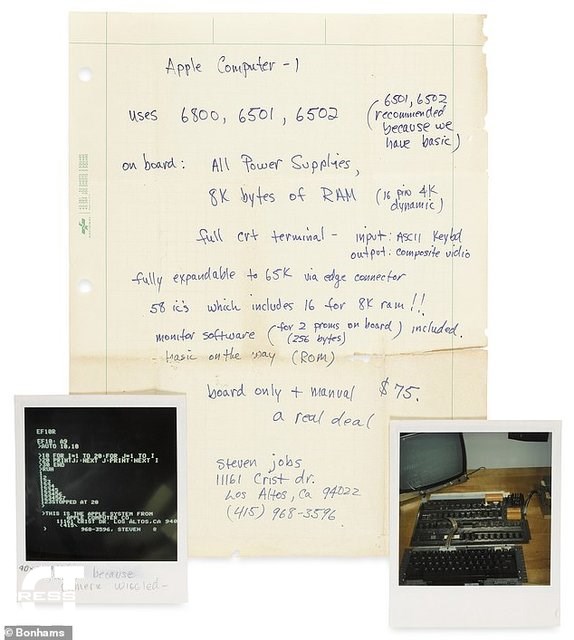 Apple Computer - 1
uses 6800, 6501, 6502
(6501, 6502
recommended
because we
have basic)
on board: All Power Supplies,
8K bytes of RAM (16 pin 4K
dynamic)
full crt terminal - input: ASCII Keybd
output: composite vidio
fully expandable to 65K via edge connector
58 ic's which includes 16 for 8K ram!!
monitor software (for 2 proms on board) included.
(256 bytes)
- basic on the way (ROM)
board only + manual $75.
a real deal
steven jobs
11161 Crist dr.
Los Altos, Ca 94022
(415) 968-3596
EF10R
EF10: A9
>AUTO 10,10
>10 FOR I=1 TO 20:FOR J=1 TO I
>20 PRINT J,:NEXT J:PRINT:NEXT I
>30 END
>RUN
STOPPED AT 20
>THIS IS THE APPLE SYSTEM FROM
APPLE COMPUTER CO.
11161 CRIST DR. LOS ALTOS,CA 940
(415)
968-3596, STEVEN
because
camera wiggled-
RESS
© Bonhams